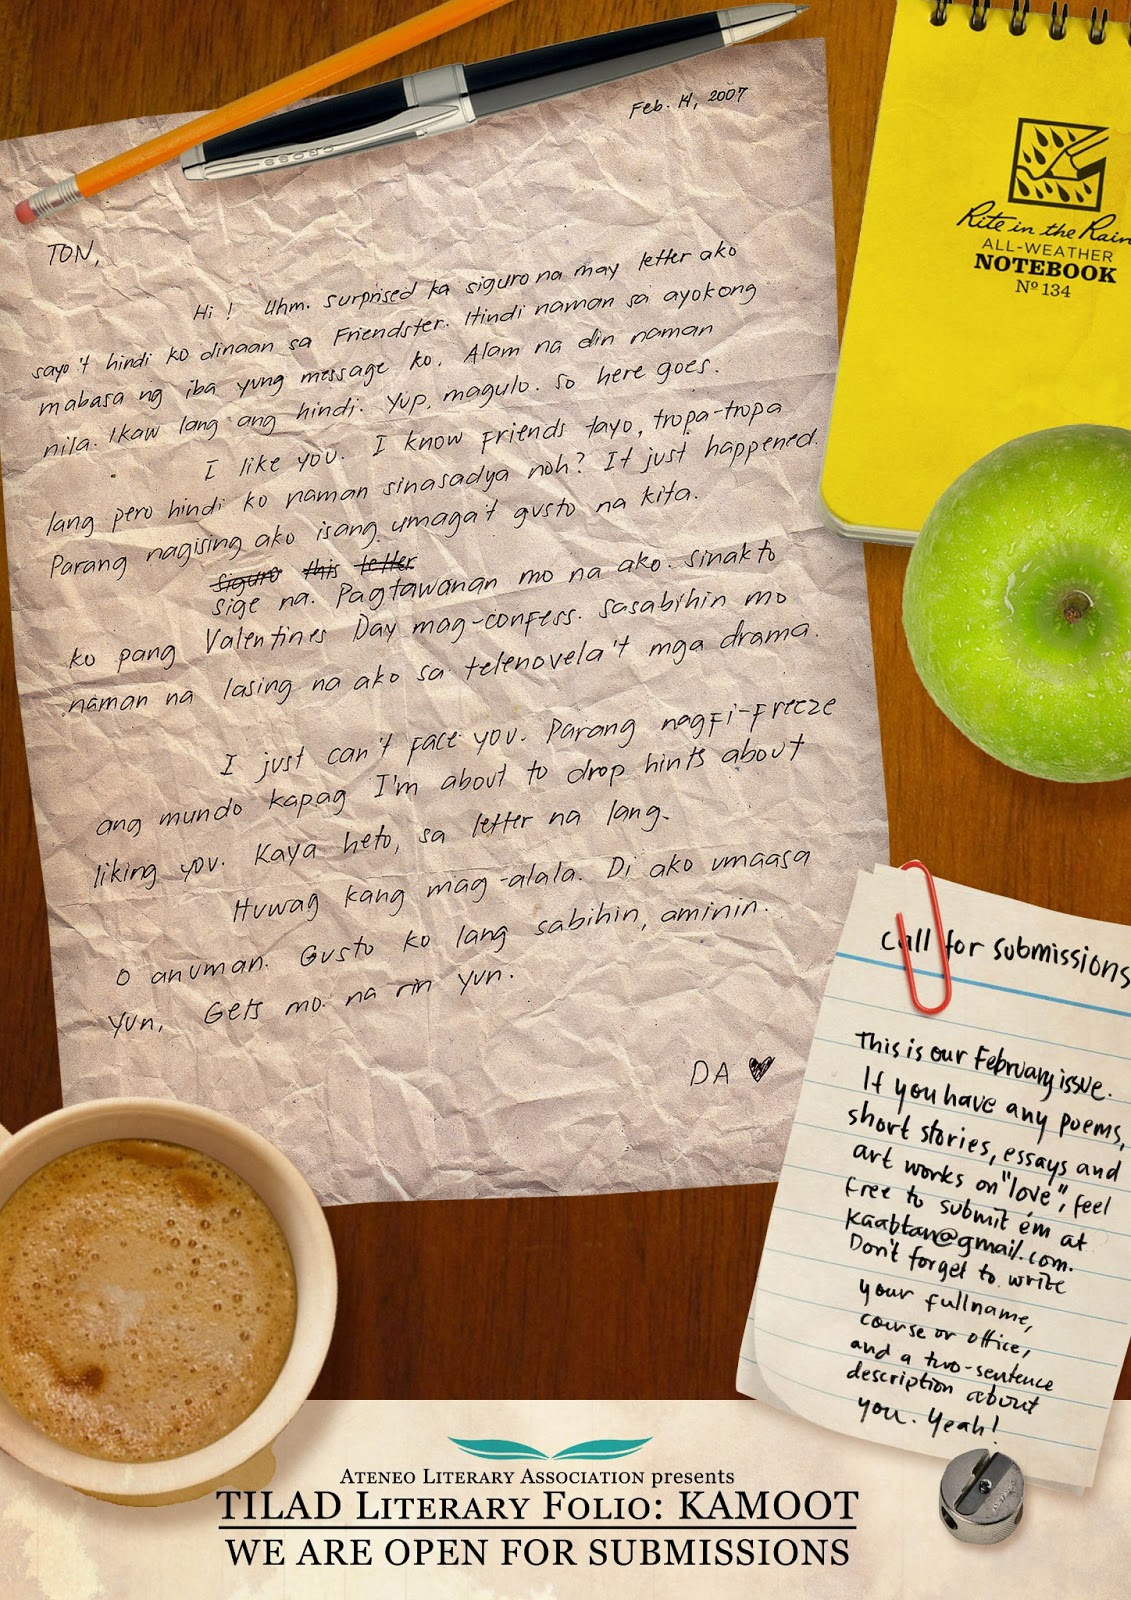 Feb. 14, 2007
CROSS
TON,
Hi! Uhm. Surprised ka siguro na may letter ako
sayo't hindi ko dinaan sa Friendster. Hindi naman sa ayokong
mabasa ng iba yung message ko. Alam na din naman
nila. Ikaw lang ang hindi. Yup, magulo. So here goes.
I like you. I know friends tayo, tropa-tropa
lang pero hindi ko naman sinasadya noh? It just happened.
Parang nagising ako isang umaga't gusto na kita.
siguro this letter
sige na. Pagtawanan mo na ako. sinakto
ko pang Valentines Day mag-confess. Sasabihin mo
naman na lasing na ako sa telenovela't mga drama.
I just can't face you. Parang nagfi-freeze
ang mundo kapag I'm about to drop hints about
liking you. Kaya heto, sa letter na lang.
Huwag kang mag-alala. Di ako umaasa
o anuman. Gusto ko lang sabihin, aminin.
Yun, Gets mo na rin yun.
DA ♥
Rite in the Rain
ALL-WEATHER
NOTEBOOK
Nº 134
call for submissions
This is our February issue.
If you have any poems,
short stories, essays and
art works on "love", feel
free to submit em at
kaabtan@gmail.com.
Don't forget to write
your fullname,
course or office,
and a two-sentence
description about
you. Yeah!
ATENEO LITERARY ASSOCIATION presents
TILAD LITERARY FOLIO: KAMOOT
WE ARE OPEN FOR SUBMISSIONS